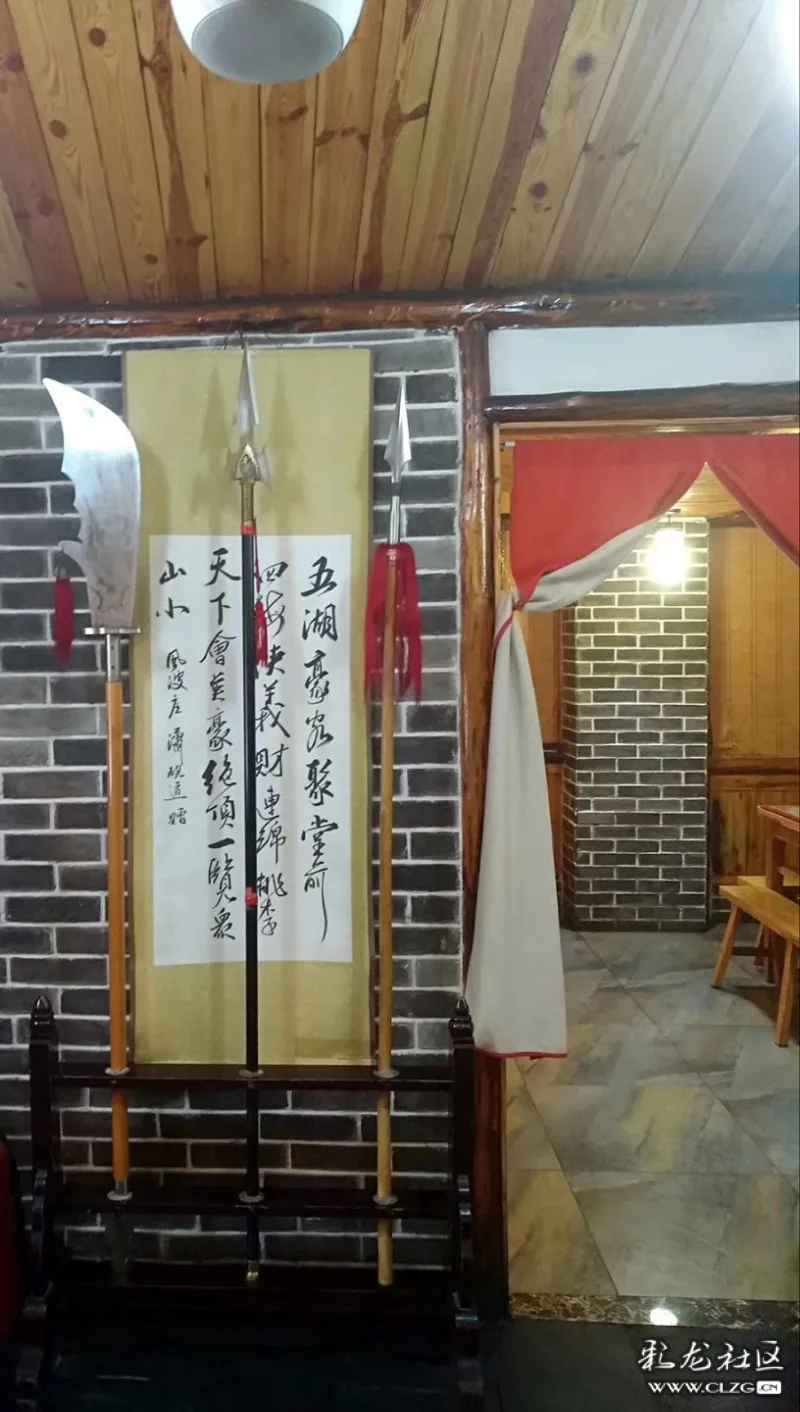 五湖豪客聚堂前
四海俠義財連綿桃李
天下會英豪絕頂一覽眾
山小
風波庄 贈
彩龙社区
WWW.CLZG.CN